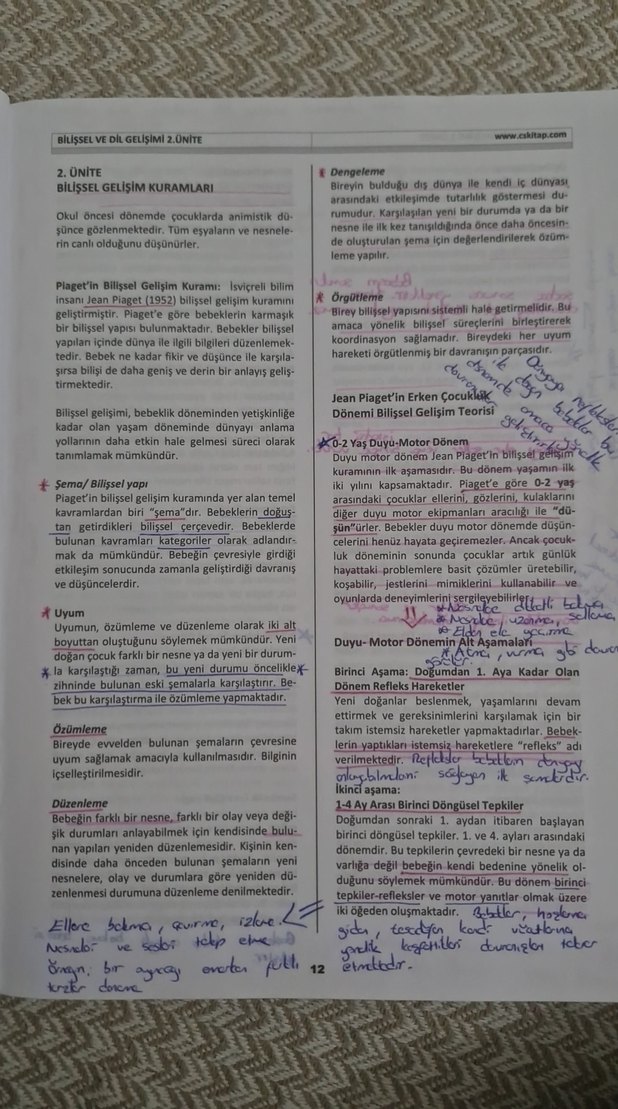 BİLİŞSEL VE DİL GELİŞİMİ 2.ÜNİTE
www.cskitap.com
2. ÜNİTE
BİLİŞSEL GELİŞİM KURAMLARI
Okul öncesi dönemde çocuklarda animistik dü-
şünce gözlenmektedir. Tüm eşyaların ve nesnele-
rin canlı olduğunu düşünürler.
Piaget'in Bilişsel Gelişim Kuramı: İsviçreli bilim
insanı Jean Piaget (1952) bilişsel gelişim kuramını
geliştirmiştir. Piaget'e göre bebeklerin karmaşık
bir bilişsel yapısı bulunmaktadır. Bebekler bilişsel
yapıları içinde dünya ile ilgili bilgileri düzenlemek-
tedir. Bebek ne kadar fikir ve düşünce ile karşıla-
şırsa bilişi de daha geniş ve derin bir anlayış geliş-
tirmektedir.
Bilişsel gelişimi, bebeklik döneminden yetişkinliğe
kadar olan yaşam döneminde dünyayı anlama
yollarının daha etkin hale gelmesi süreci olarak
tanımlamak mümkündür.
* Şema/ Bilişsel yapı
Piaget'in bilişsel gelişim kuramında yer alan temel
kavramlardan biri "şema"dır. Bebeklerin doğuş-
tan getirdikleri bilişsel çerçevedir. Bebeklerde
bulunan kavramları kategoriler olarak adlandır-
mak da mümkündür. Bebeğin çevresiyle girdiği
etkileşim sonucunda zamanla geliştirdiği davranış
ve düşüncelerdir.
* Uyum
Uyumun, özümleme ve düzenleme olarak iki alt
boyuttan oluştuğunu söylemek mümkündür. Yeni
doğan çocuk farklı bir nesne ya da yeni bir durum-
* la karşılaştığı zaman, bu yeni durumu öncelikle *
zihninde bulunan eski şemalarla karşılaştırır. Be-
bek bu karşılaştırma ile özümleme yapmaktadır.
Özümleme
Bireyde evvelden bulunan şemaların çevresine
uyum sağlamak amacıyla kullanılmasıdır. Bilginin
içselleştirilmesidir.
Düzenleme
Bebeğin farklı bir nesne, farklı bir olay veya deği-
şik durumları anlayabilmek için kendisinde bulu-
nan yapıları yeniden düzenlemesidir. Kişinin ken-
disinde daha önceden bulunan şemaların yeni
nesnelere, olay ve durumlara göre yeniden dü-
zenlenmesi durumuna düzenleme denilmektedir.
Ellere bakma, çevirme, izleme.
Nesneleri ve sesleri takip etme
Örneğin; bir oyuncağı ararken farklı
tarzlar deneme
* Dengeleme
Bireyin bulduğu dış dünya ile kendi iç dünyası
arasındaki etkileşimde tutarlılık göstermesi du-
rumudur. Karşılaşılan yeni bir durumda ya da bir
nesne ile ilk kez tanışıldığında önce daha öncesin-
de oluşturulan şema için değerlendirilerek özüm-
leme yapılır.
* Örgütleme
Birey bilişsel yapısını sistemli hale getirmelidir. Bu
amaca yönelik bilişsel süreçlerini birleştirerek
koordinasyon sağlamadır. Bireydeki her uyum
hareketi örgütlenmiş bir davranışın parçasıdır.
Dünyaya refleksleri
ile doğan bebekler bu
dönemde amaca yönelik
davranışlar geliştirirler
Jean Piaget'in Erken Çocukluk
Dönemi Bilişsel Gelişim Teorisi
* 0-2 Yaş Duyu-Motor Dönem
Duyu motor dönem Jean Piaget'in bilişsel gelişim
kuramının ilk aşamasıdır. Bu dönem yaşamın ilk
iki yılını kapsamaktadır. Piaget'e göre 0-2 yaş
arasındaki çocuklar ellerini, gözlerini, kulaklarını
diğer duyu motor ekipmanları aracılığı ile "dü-
şün"ürler. Bebekler duyu motor dönemde düşün-
celerini henüz hayata geçiremezler. Ancak çocuk-
luk döneminin sonunda çocuklar artık günlük
hayattaki problemlere basit çözümler üretebilir,
koşabilir, jestlerini mimiklerini kullanabilir ve
oyunlarda deneyimlerini sergileyebilirler.
* Nesnelere dikkatli bakma
* Nesnelere, uzanma, sallama
* Elden ele geçirme
* Atma, vurma gibi davranışlar
Duyu- Motor Dönemin Alt Aşamaları
Birinci Aşama: Doğumdan 1. Aya Kadar Olan
Dönem Refleks Hareketler
Yeni doğanlar beslenmek, yaşamlarını devam
ettirmek ve gereksinimlerini karşılamak için bir
takım istemsiz hareketler yapmaktadırlar. Bebek-
lerin yaptıkları istemsiz hareketlere "refleks" adı
verilmektedir. Refleksler bebeklerin dünyayı
anlayabilmelerini sağlayan ilk şemalardır.
İkinci aşama:
1-4 Ay Arası Birinci Döngüsel Tepkiler
Doğumdan sonraki 1. aydan itibaren başlayan
birinci döngüsel tepkiler. 1. ve 4. ayları arasındaki
dönemdir. Bu tepkilerin çevredeki bir nesne ya da
varlığa değil bebeğin kendi bedenine yönelik ol-
duğunu söylemek mümkündür. Bu dönem birinci
tepkiler-refleksler ve motor yanıtlar olmak üzere
iki öğeden oluşmaktadır. Bebekler, hoşlarına
giden, tesadüfen kendi vücutlarına
yönelik keşfettikleri davranışları tekrar
etmektedir.
12